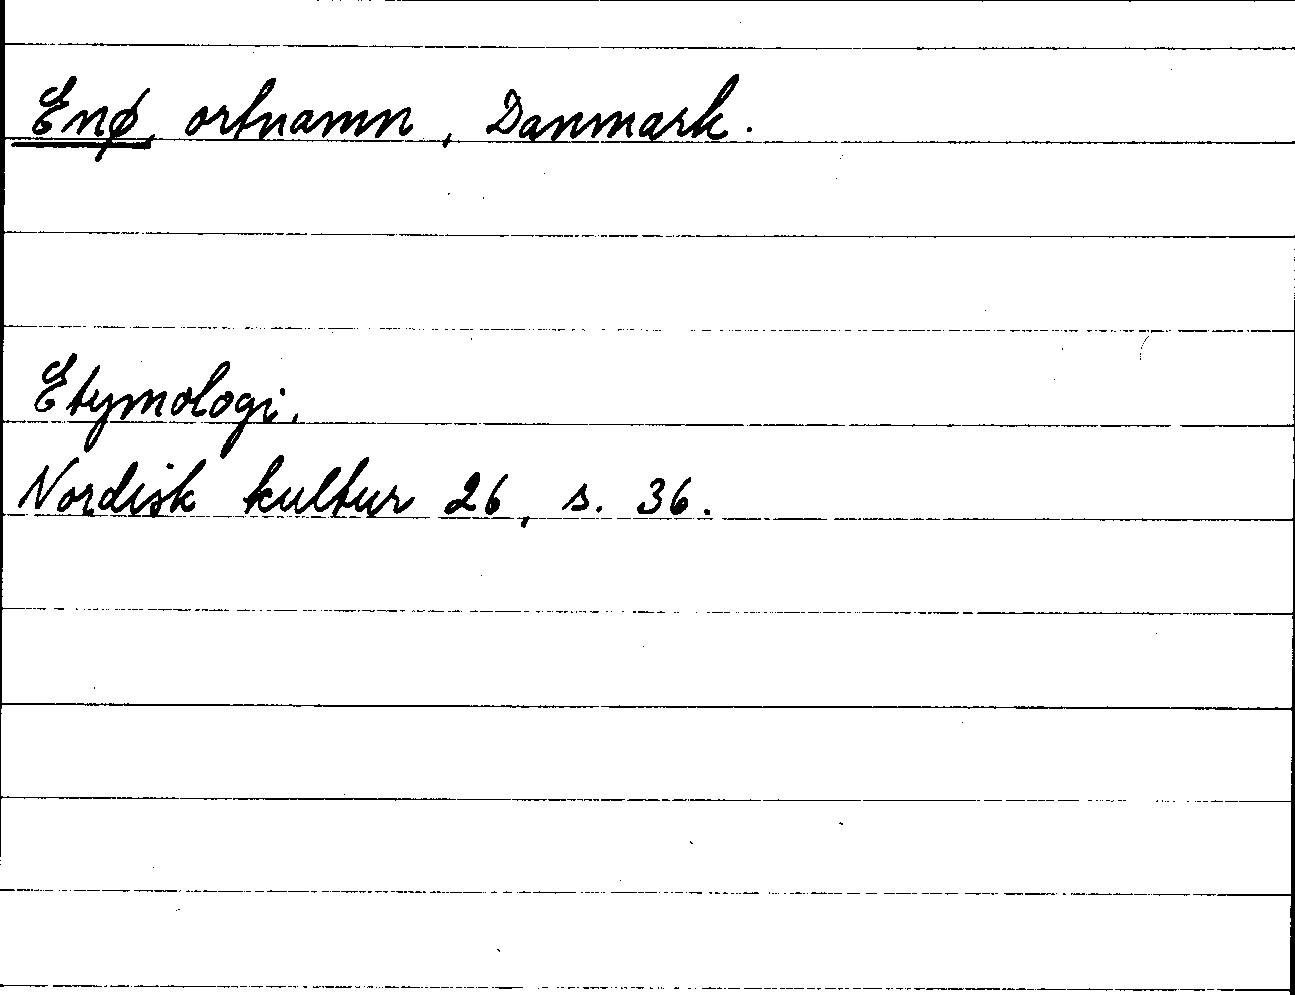 Enø, ortnamn, Danmark.
Etymologi.
Nordisk kultur 26, s. 36.